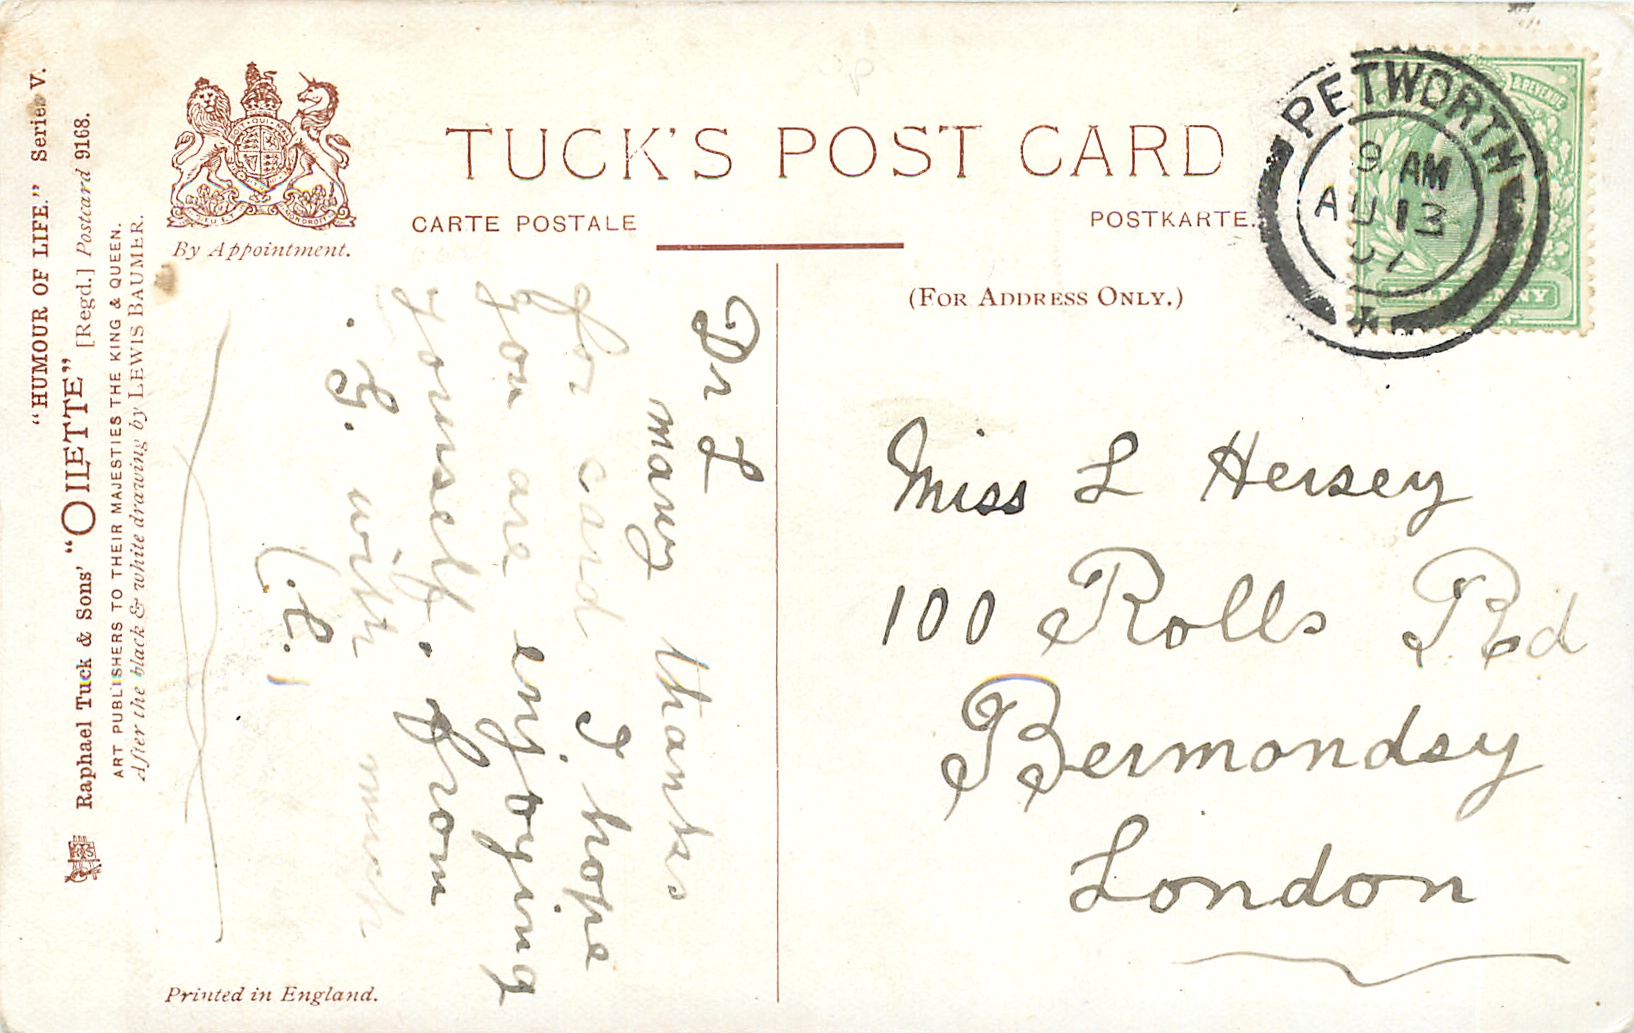 "HUMOUR OF LIFE." Series V.
Raphael Tuck & Sons' "OILETTE" [Regd.] Postcard 9168.
ART PUBLISHERS TO THEIR MAJESTIES THE KING & QUEEN.
After the black & white drawing by LEWIS BAUMER.
By Appointment.
TUCK'S POST CARD
CARTE POSTALE
POSTKARTE.
(FOR ADDRESS ONLY.)
& REVENUE
PETWORTH
9 AM
AU 13
07
Dr L
many thanks
for card. I hope
you are enjoying
yourself. from
G. with much
Miss L Hersey
100 Rolls Rd
Bermondsy
London
Printed in England.